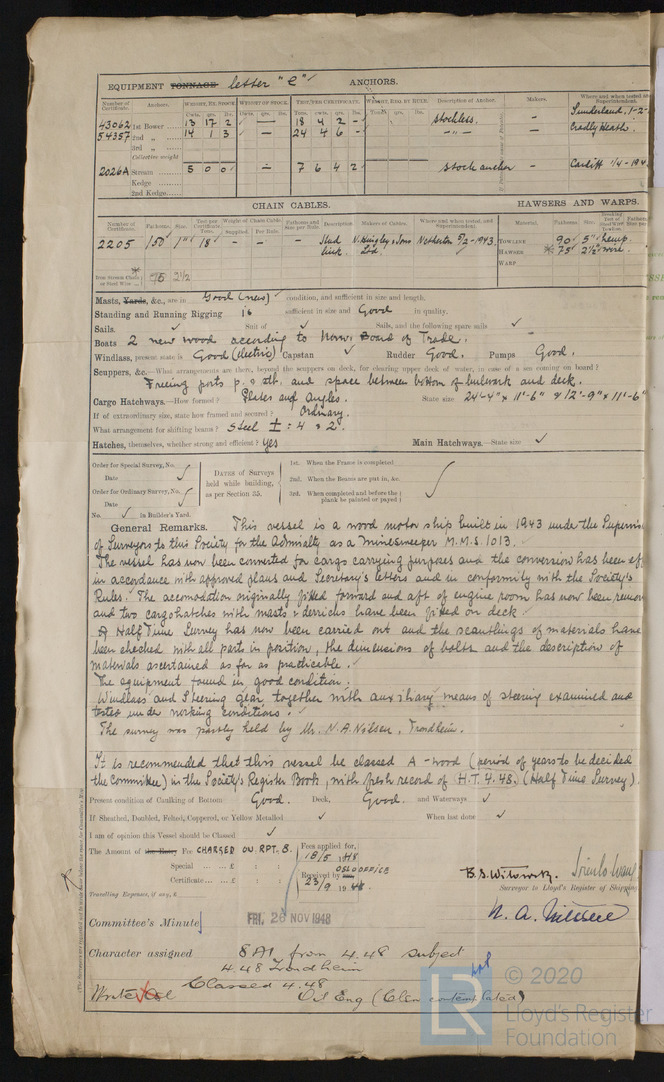 EQUIPMENT TONNAGE letter "e" ANCHORS.
Number of Certificate. Anchors. WEIGHT, EX. STOCK. WEIGHT OF STOCK. TEST PER CERTIFICATE. WEIGHT, REQ. BY RULE. Description of Anchor. Makers. Where and when tested and Superintendent.
Cwts. qrs. lbs. Tons.
43062 1st Bower 13 17 2 — 18 4 2 - stockless. — Sunderland, 1-2-
54357 2nd " 14 1 3 — 24 4 6 - -"- — Cradley Heath.
3rd "
Collective weight
2026A Stream 5 0 0 — 7 6 4 2 stock anchor — Cardiff 1/4-194
Kedge
2nd Kedge
CHAIN CABLES. HAWSERS AND WARPS.
Number of Certificate. Fathoms. Size. Test per Certificate. Tons. Weight of Chain Cable Supplied Per Rule. Fathoms and Size per Rule. Description Makers of Cables. Where and when tested, and Superintendent. Material. Fathoms. Size.
2205 150 1" 18 — — — Stud link. N. Hingley & Sons Ltd. Netherton 5/2-1943. TOWLINE 90 5" hemp.
HAWSER * 75 2½" wire.
WARP
Iron Stream Chain or Steel Wire * 75 2½
Masts, Yards, &c., are in Good (new) condition, and sufficient in size and length.
Standing and Running Rigging is sufficient in size and Good in quality.
Sails. Suit of Sails, and the following spare sails
Boats 2 new wood according to Norw. Board of Trade.
Windlass, present state is Good (electric) Capstan Rudder Good. Pumps Good.
Scuppers, &c.—What arrangements are there, beyond the scuppers on deck, for clearing upper deck of water, in case of a sea coming on board?
Freeing ports p. & stb. and space between bottom of bulwark and deck.
Cargo Hatchways.—How formed? Plates and angles. State size 24'-4" x 11'-6" & 12'-9" x 11'-6"
If of extraordinary size, state how framed and secured? Ordinary.
What arrangement for shifting beams? Steel I: 4 & 2.
Hatches, themselves, whether strong and efficient? Yes Main Hatchways.—State size
Order for Special Survey, No.
Date
Order for Ordinary Survey, No.
Date
No. in Builder's Yard.
DATES of Surveys held while building, as per Section 35.
1st. When the Frame is completed
2nd. When the Beams are put in, &c.
3rd. When completed and before the plank be painted or payed
General Remarks. This vessel is a wood motor ship built in 1943 under the Supervis
of Surveyors to this Society for the Admiralty as a Minesweeper M.M.S. 1013.
The vessel has now been converted for cargo carrying purposes and the conversion has been ef
in accordance with approved plans and Secretary's letters and in conformity with the Society's
Rules. The accomodation originally fitted forward and aft of engine room has now been remov
and two cargohatches with masts & derricks have been fitted on deck
A Half Time Survey has now been carried out and the scantlings of materials have
been checked with all parts in position, the dimensions of bolts and the description of
materials ascertained as far as practicable.
The equipment found in good condition.
Windlass and Steering Gear together with auxiliary means of steering examined and
tested under working conditions.
The survey was partly held by Mr. N. A. Nilsen, Trondheim.
It is recommended that this vessel be classed A - wood (period of years to be decided
the Committee) in the Society's Register Book, with fresh record of H.T. 4.48. (Half Time Survey).
Present condition of Caulking of Bottom Good. Deck, Good. and Waterways
If Sheathed, Doubled, Felted, Coppered, or Yellow Metalled When last done
I am of opinion this Vessel should be Classed
The Amount of the Entry Fee CHARGED ON RPT. 8. Fees applied for, 18/5 1948
Special £ : : Received by OSLO OFFICE
Certificate £ : : 23/9 1948.
Travelling Expenses, if any, £
B. S. Witowitz.
Surveyor to Lloyd's Register of Shipping
N. A. Nilsen
Committee's Minute FRI. 26 NOV 1948
Character assigned 8 A1 from 4.48 subject
4.48 Trondheim
Classed 4.48
Oil Eng (Clen contemplated)
© 2020
LR Lloyd's Register
Foundation